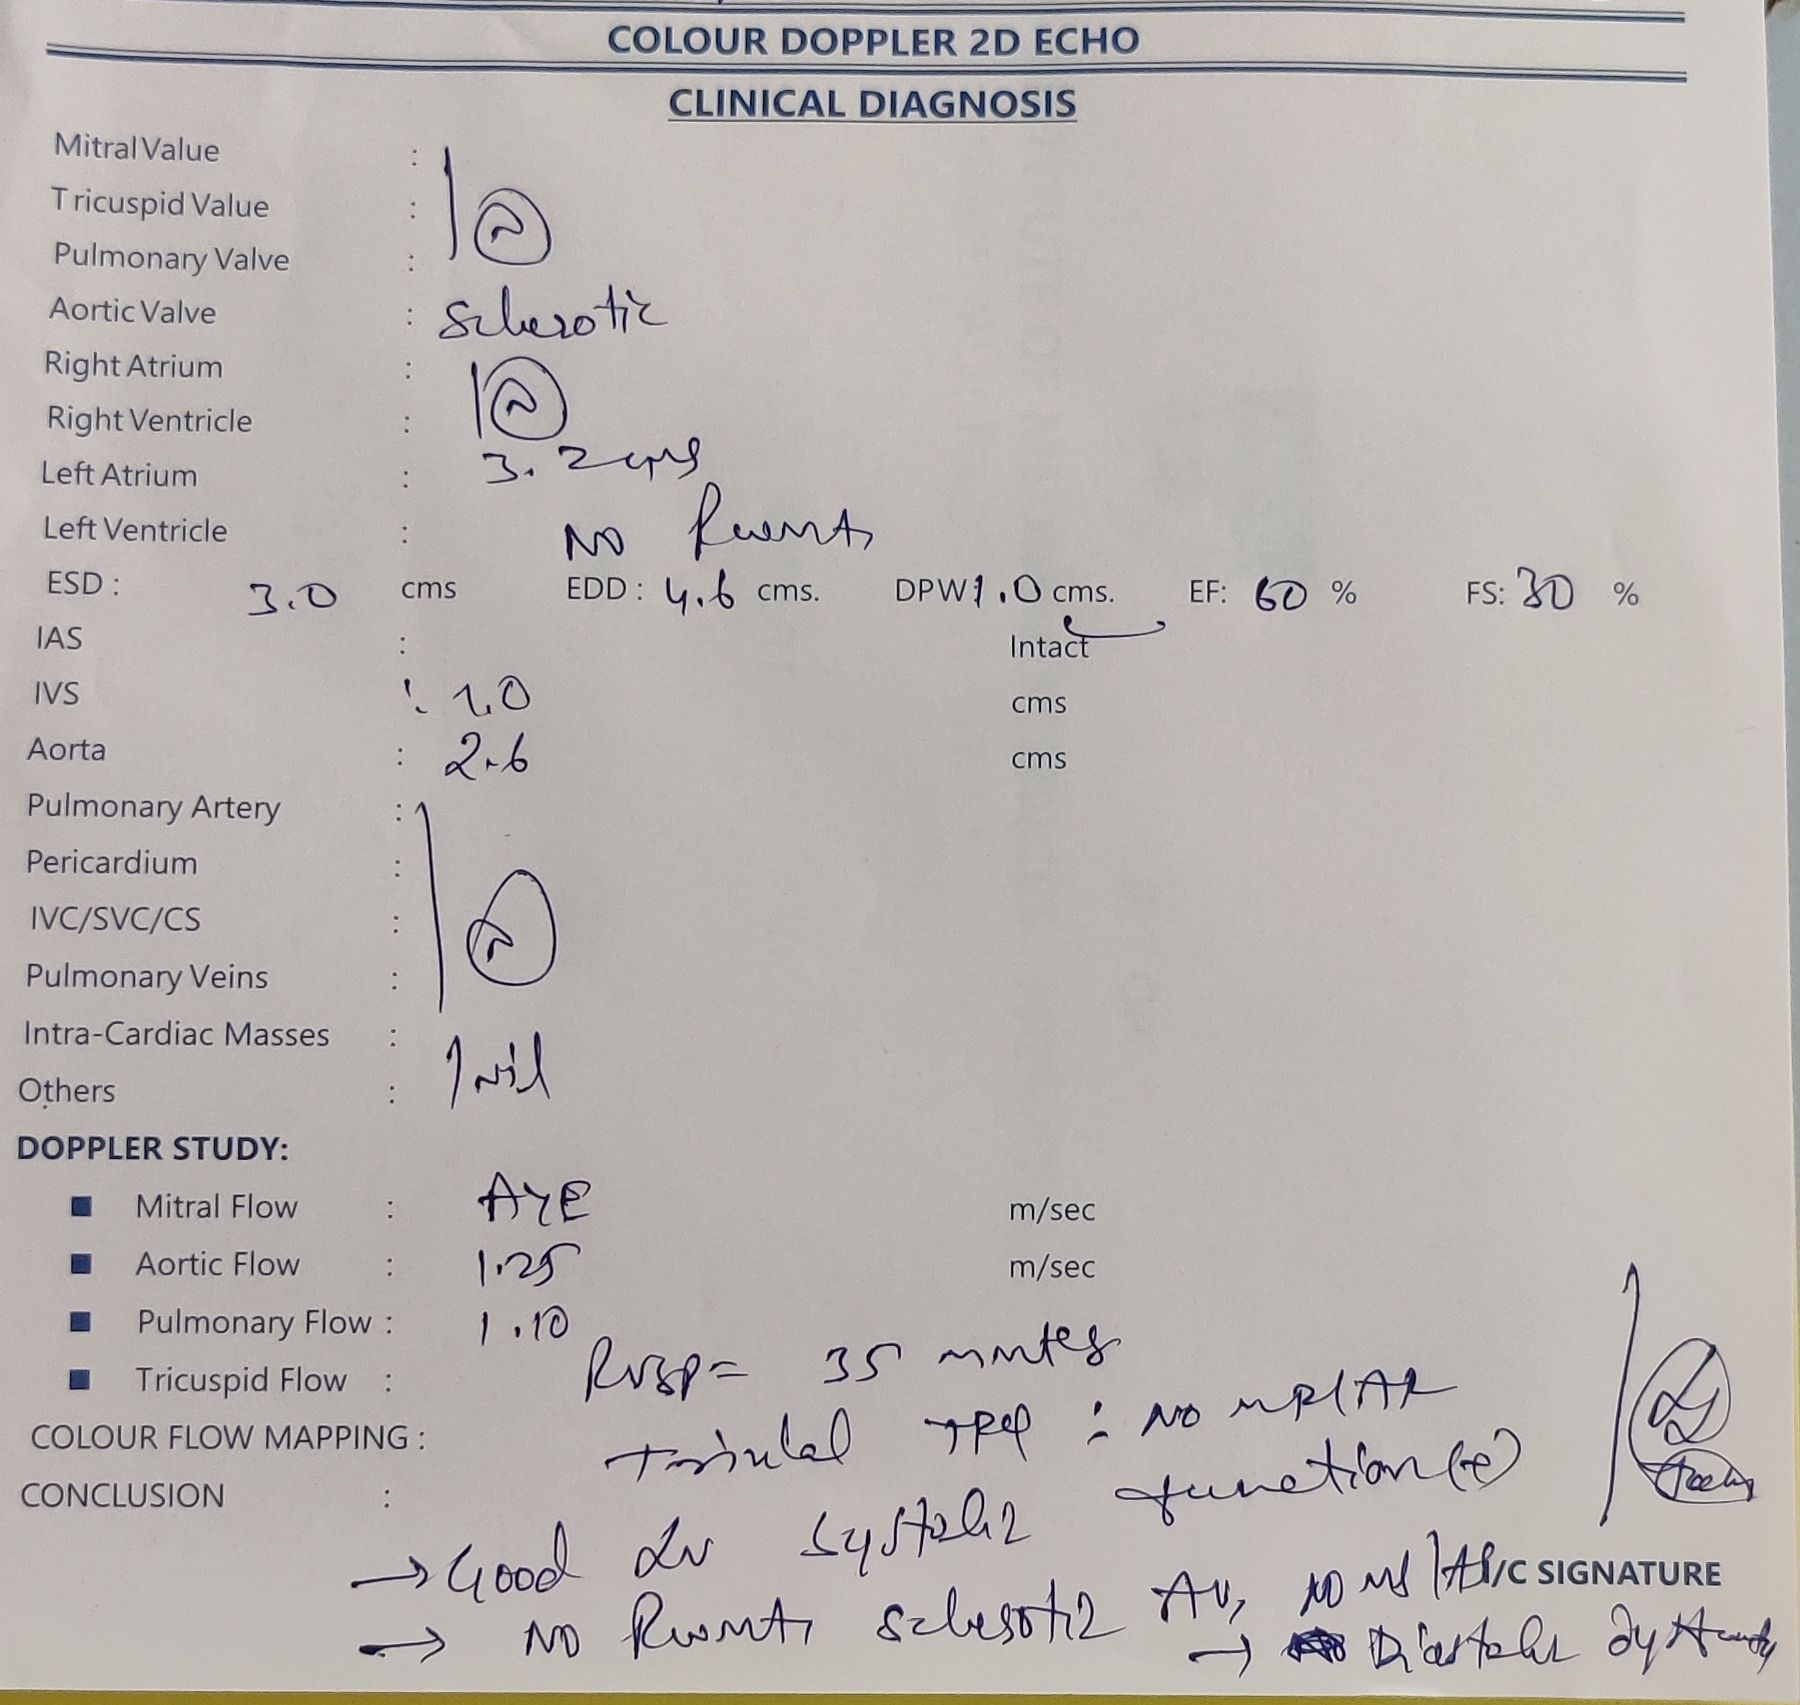 COLOUR DOPPLER 2D ECHO
CLINICAL DIAGNOSIS
Mitral Value :
Tricuspid Value : N
Pulmonary Valve :
Aortic Valve : Sclerotic
Right Atrium :
Right Ventricle : N
Left Atrium : 3.2 cms
Left Ventricle : NO RWMA,
ESD : 3.0 cms EDD : 4.6 cms. DPW 1.0 cms. EF: 60 % FS: 30 %
IAS : Intact
IVS : 1.0 cms
Aorta : 2.6 cms
Pulmonary Artery :
Pericardium :
IVC/SVC/CS : N
Pulmonary Veins :
Intra-Cardiac Masses :
Others : Nil
DOPPLER STUDY:
Mitral Flow : A>E m/sec
Aortic Flow : 1.25 m/sec
Pulmonary Flow : 1.10
Tricuspid Flow : RVSP = 35 mmHg
COLOUR FLOW MAPPING : Trivial TR : NO MR/AR
CONCLUSION :
→ Good LV Systolic function
→ NO RWMA, Sclerotic AV, NO MS
/C SIGNATURE
→ Diastolic